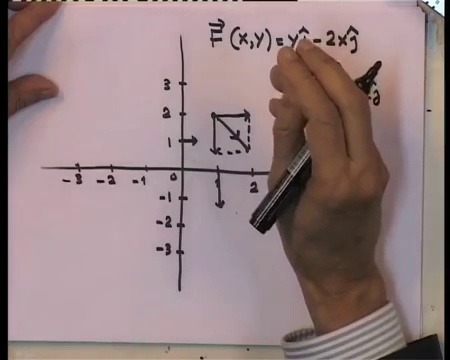 F⃗ (x,y) = yî - 2xĵ
3
2
1
-3 -2 -1 0 1 2
-1
-2
-3